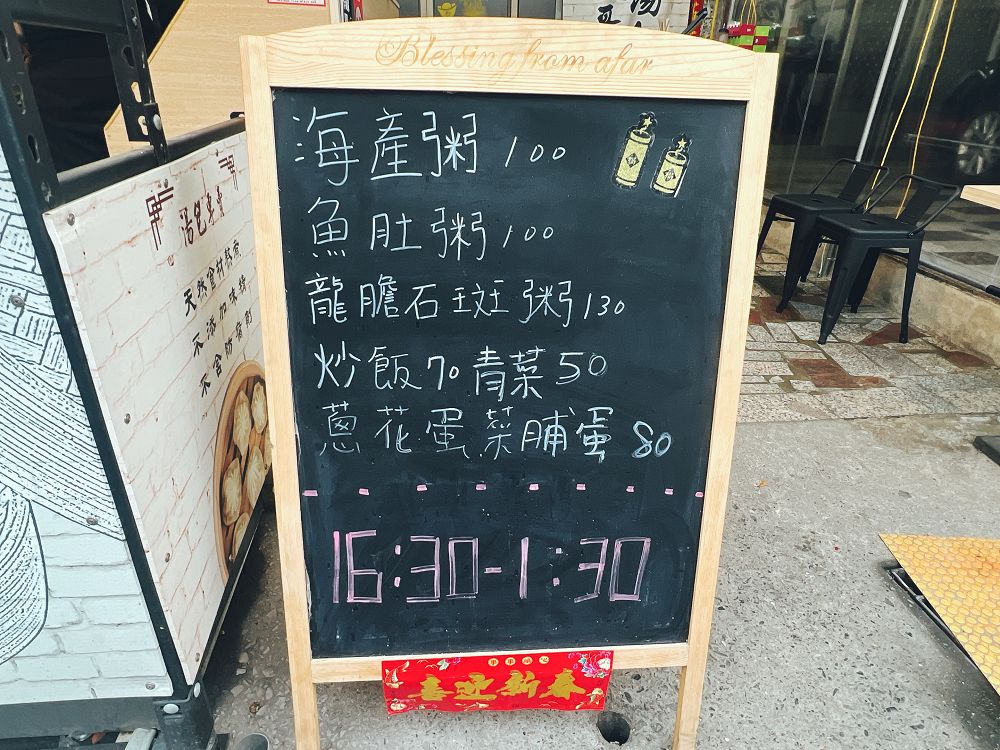 Blessing from afar
海產粥 100
魚肚粥 100
龍膽石斑粥 130
炒飯70 青菜50
蔥花蛋 菜脯蛋 80
16:30-1:30
喜迎新春
湯包專賣
天然食材熬煮
不添加味精
不含防腐劑